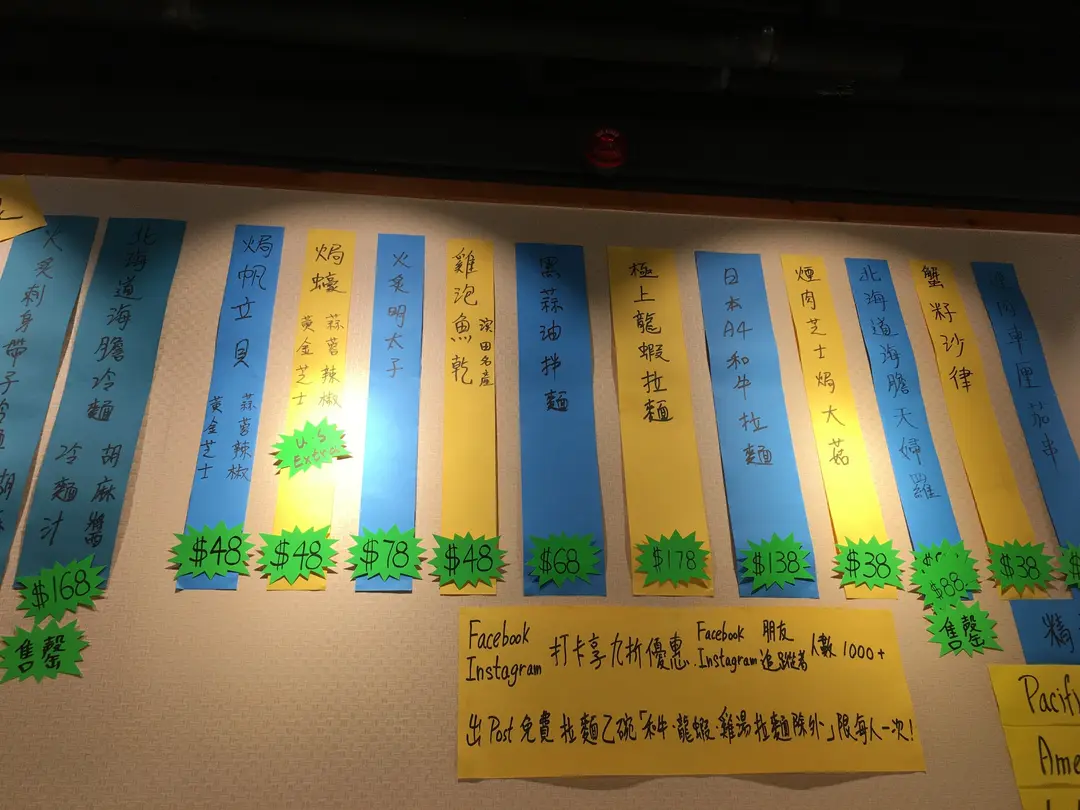 火炙刺身帶子冷麵 胡麻
北海道海膽冷麵 胡麻醬
冷麵汁
$168
售罄
焗帆立貝
蒜蓉辣椒
黃金芝士
$48
焗蠔
蒜蓉辣椒
黃金芝士
U.S
Extra
$48
火炙明太子
$78
雞泡魚乾
濱田名產
$48
黑蒜油拌麵
$68
極上龍蝦拉麵
$178
日本A4和牛拉麵
$138
煙肉芝士焗大菇
$38
北海道海膽天婦羅
$88
售罄
蟹籽沙律
$38
車厘茄串
精
Facebook
Instagram
打卡享九折優惠.
Facebook 朋友
Instagram 追蹤者
人數 1000+
出Post免費拉麵乙碗「和牛.龍蝦.雞湯拉麵除外」限每人一次!
Pacifi
Ame